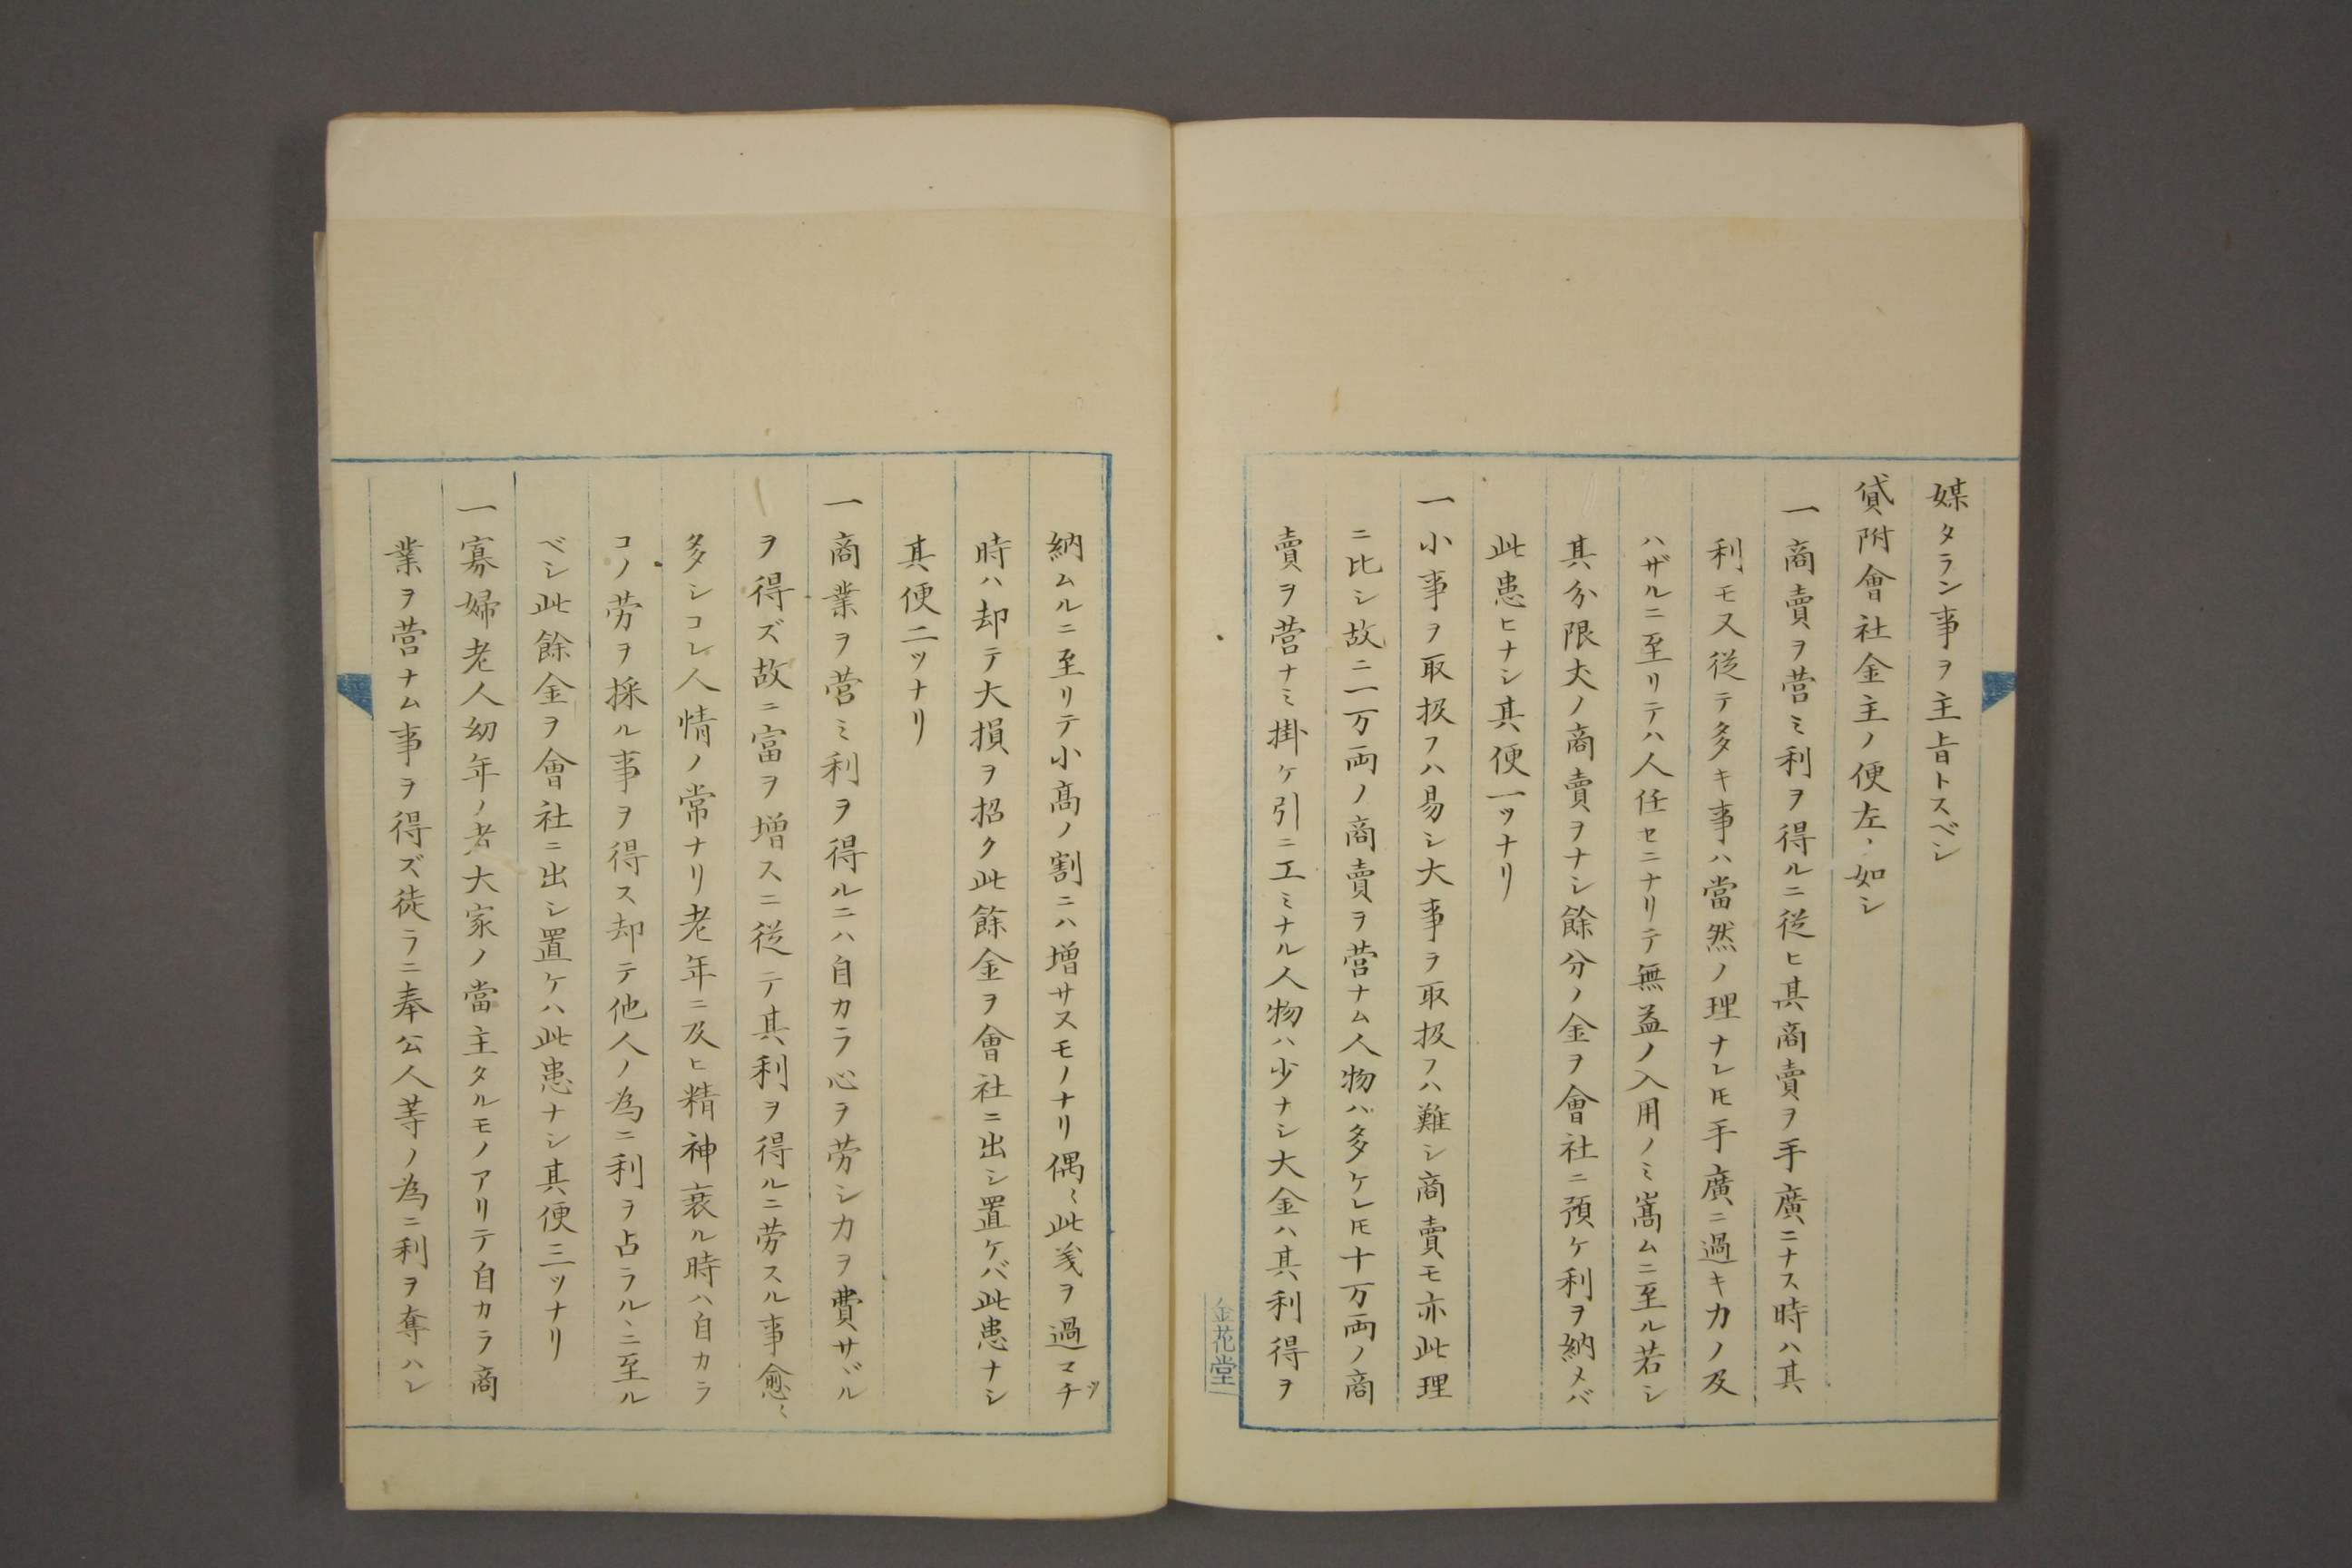 媒タラン事ヲ主旨トスベシ
貸附會社金主ノ便左ノ如シ
一商賣ヲ営ミ利ヲ得ルニ従ヒ其商賣ヲ手廣ニナス時ハ其
利モ又従テ多キ事ハ當然ノ理ナレ𪜈手廣ニ過キカノ及
ハザルニ至リテハ人任セニナリテ無益ノ入用ノミ嵩ムニ至ル若シ
其分限𠀋ノ商賣ヲナシ餘分ノ金ヲ會社ニ預ケ利ヲ納メバ
此患ヒナシ其便一ッナリ
一小事ヲ取扱フハ易シ大事ヲ取扱フハ難シ商賣モ亦此理
ニ比シ故ニ一万両ノ商賣ヲ営ナム人物ハ多ケレ𪜈十万両ノ商
賣ヲ営ナミ掛ケ引ニ工ミナル人物ハ少ナシ大金ハ其利得ヲ
金花堂
納ムルニ至リテ小髙ノ割ニハ増サスモノナリ偶〻此義ヲ過マチッ
時ハ却テ大損ヲ招ク此餘金ヲ會社ニ出シ置ケバ此患ナシ
其便二ッナリ
一商業ヲ営ミ利ヲ得ルニハ自カラ心ヲ労シ力ヲ費サヾル
ヲ得ズ故ニ富ヲ増スニ従テ其利ヲ得ルニ労スル事愈〻
多シコレ人情ノ常ナリ老年ニ及ヒ精神衰ル時ハ自カラ
コノ労ヲ採ル事ヲ得ス却テ他人ノ為ニ利ヲ占ラルヽニ至ル
ベシ此餘金ヲ會社ニ出シ置ケハ此患ナシ其便三ッナリ
一寡婦老人幼年ノ者大家ノ當主タルモノアリテ自カラ商
業ヲ営ナム事ヲ得ズ徒ラニ奉公人等ノ為ニ利ヲ奪ハレ